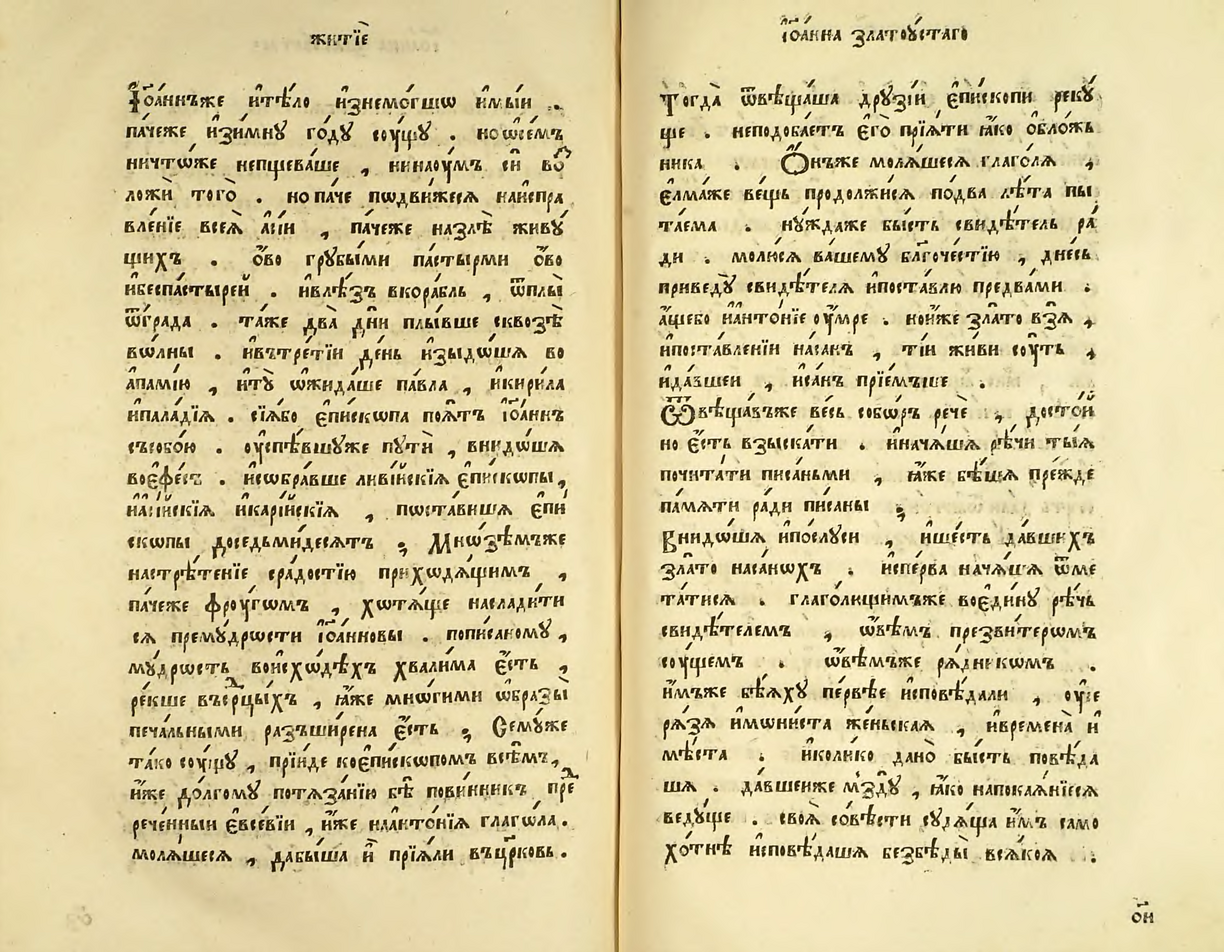 житїе
І҆ѡа́ннъже и҆тѣ́ло и҆знемо́гшѡ и҆мы́и .
па́чеже и҆зи́мнꙋ го́дꙋ сꙋ́щꙋ . но ѡ҆се́мъ
ничто́же непщева́ше , нинаоу́мъ си́ во
ложѝ того̀ . но па́че пѡдви́жеся наи҆спра
вле́нїе всея̀ а҆сі́и , па́чеже назлѣ̀ живꙋ́
щихъ . о҆́во грꙋ́быми па́стырми о҆́во
и҆беспа́стырей . и҆влѣ́зъ вкора́бль , ѿплы̀
ѿгра́да . та́же два̀ дни̑ плы́вше сквозѣ̀
вѡ́лны . и҆вътре́тїи де́нь и҆зыдо́шѧ во
а҆памі́ю , и҆тꙋ̀ ѡ҆жида́ше па́вла , и҆кири́ла
и҆пала́дїѧ . сїѧ̀бо є҆пи́скѡпа поя́тъ і҆ѡа́ннъ
съсобо́ю . оу҆спѣ́вшꙋже пꙋтѝ , внидо́шѧ
воє҆фе́съ . и҆собра́вше ливі́йскїѧ є҆пи́скѡпы ,
и҆а҆сі́йскїѧ и҆карі́йскїѧ , пѡста́вишѧ є҆пи́
скѡпы доседмьдеся́тъ ; Мно́зѣмъже
настрѣ́тенїе сра́достїю приходя́щимъ ,
па́чеже фрꙋ́гѡмъ , хотя́ще наслади́ти
сѧ премꙋ́дрости і҆ѡа́нновы . пописа́номꙋ ,
мꙋ́дрость воисхо́дѣхъ хвали́ма є҆́сть ,
ре́кше въсрцы́хъ , ꙗ҆́же мно́гими ѡ҆́бразы
печа́льными разъшире́на є҆́сть ; Семꙋ́же
та́ко сꙋ́щꙋ , прїи́де коє҆пи́скѡпомъ всѣ́мъ ,
и҆́же до́лгомꙋ потѧза́нїю бѣ̀ пови́нникъ пре
рече́нныи є҆все́вїи , и҆́же наа҆нто́нїѧ глаго́ла .
моля́шесѧ , дабы́ша и҆̀ прїя́ли въце́рковь .
і҆ѡа́нна златоꙋ́стаго
Тогда̀ ѿвѣща́ша дрꙋзі́и є҆пи́скопи рекꙋ́
ще . неподоба́етъ є҆го̀ прїя́ти ꙗ҆́ко ѻ҆бло́жъ
ника . Ѻ҆́нъже моля́шесѧ глаго́лѧ ,
є҆лма́же ве́щь продолжи́сѧ по́два лѣ́та пы
та́ема . нꙋ́ждаже бы́сть свидѣ́тель ра́
ди . молю́сѧ ва́шемꙋ бл҃гоче́стїю , дне́сь
приведꙋ̀ свидѣ́телѧ и҆поста́влю предва́ми .
а҆́щебо и҆а҆нто́нїе оу҆́мре . нои҆́же зла́то взя̀ ,
и҆поставле́нїи наса́нъ , ті́и жи́ви сꙋ́ть ,
и҆да́вшеи , и҆са́нъ прїе́мъше .
Ѿвѣща́въже ве́сь собо́ръ речѐ , досто́й
но є҆́сть взыска́ти . и҆нача́шѧ рѣ́чи ты́ѧ
почита́ти писа́ньми , ꙗ҆́же бѣ́шѧ пре́жде
па́мѧти ра́ди пи́саны ;
Внидо́шѧ и҆по́слꙋси , и҆ше́сть да́вшихъ
зла́то наса́нохъ . и҆спе́рва нача́шѧ ѿме
та́тисѧ . глаго́лищимъже воє҆ди́нꙋ рѣ́чь
свидѣ́телемъ , ѡ҆вѣ́мъ презви́терѡмъ
сꙋ́щемъ . ѡ҆вѣ́мъже рядникѡмъ .
и҆́мъже бѣ́яхꙋ пе́рвѣе и҆сповѣ́дали , оу҆се
ря́зѧ и҆мѡни́ста же́ньскаѧ , и҆времена̀ и҆
мѣ́ста . и҆коли́ко дано̀ бы́сть повѣ́да
шѧ . да́вшеиже мздꙋ̀ , ꙗ҆́ко напокая́нїесѧ
ведꙋ́ще . своѧ̀ со́вѣсти сꙋдя́ща и҆́мъ само
хо́тнѣ и҆сповѣ́дашѧ безбѣды̀ вся́коѧ .
ои